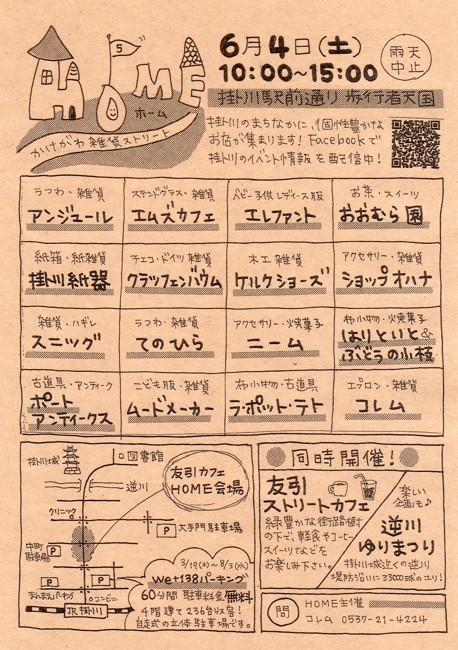 5
HOME
ホーム
かけがわ 雑貨ストリート
6月4日(土)
10:00〜15:00
雨天
中止
掛川駅前通り 歩行者天国
掛川のまちなかに、個性豊かな
お店が集まります! Facebookで
掛川のイベント情報を配信中!
うつわ・雑貨
アンジュール
ステンドグラス・雑貨
エムズカフェ
ベビー子供レディース服
エレファント
お茶・スイーツ
おおむら園
紙箱・紙雑貨
掛川紙器
チェコ・ドイツ雑貨
クラッフェンバウム
木工 雑貨
ケルクショーズ
アクセサリー・雑貨
ショップオハナ
雑貨・ハギレ
スニッグ
うつわ・雑貨
てのひら
アクセサリー・焼菓子
ニーム
布小物・焼菓子
はりといと&
ぶどうの小枝
古道具・アンティーク
ポート
アンティークス
こども服・雑貨
ムードメーカー
布小物・古道具
ラ・ポット・テト
エプロン・雑貨
コレム
掛川城
図書館
逆川
クリニック
大手門駐車場
中町
駐車場
P
P
P
P
コンビニ
JR掛川
友引カフェ
HOME会場
We+138パーキング
60分間 駐車料金 無料
4階建て236台収容!
自走式の立体駐車場です。
同時開催!
友引
ストリートカフェ
緑豊かな街路樹
の下で、軽食やコーヒー
スイーツなどを
お楽しみ下さい。
楽しい
企画も♪
逆川
ゆりまつり
掛川城近くの逆川
堤防沿いに33000球のユリ!
問
HOME主催
コレム 0537-21-4224